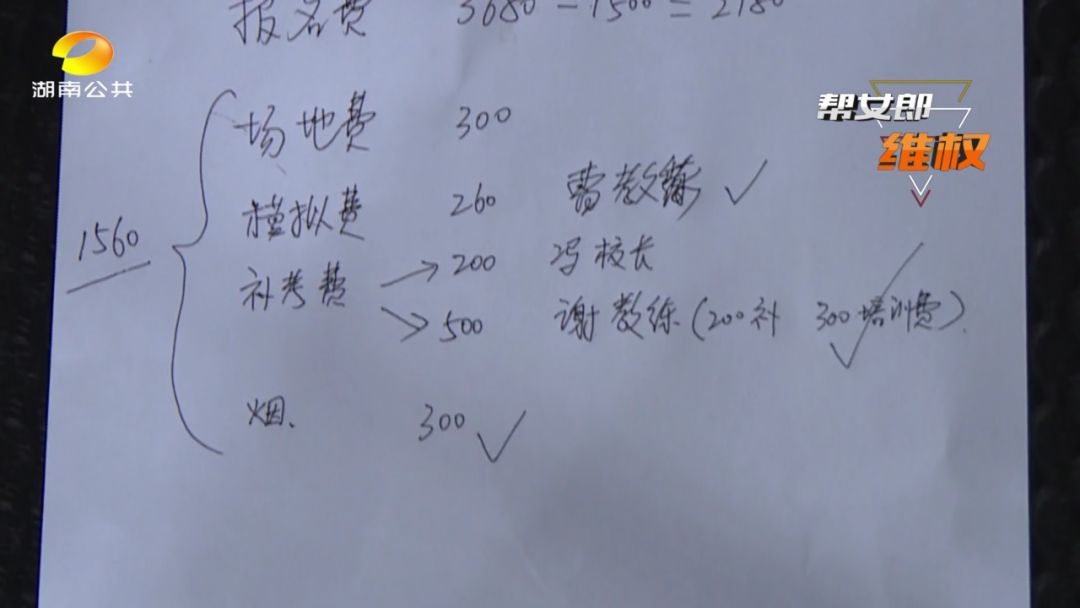 报名费 3680-1500=2180
湖南公共
帮女郎
维权
场地费 300
模拟费 260 曹教练 ✓
1560
补考费 → 200 冯校长
→ 500 谢教练(200补 300培训费). ✓
烟、 300 ✓